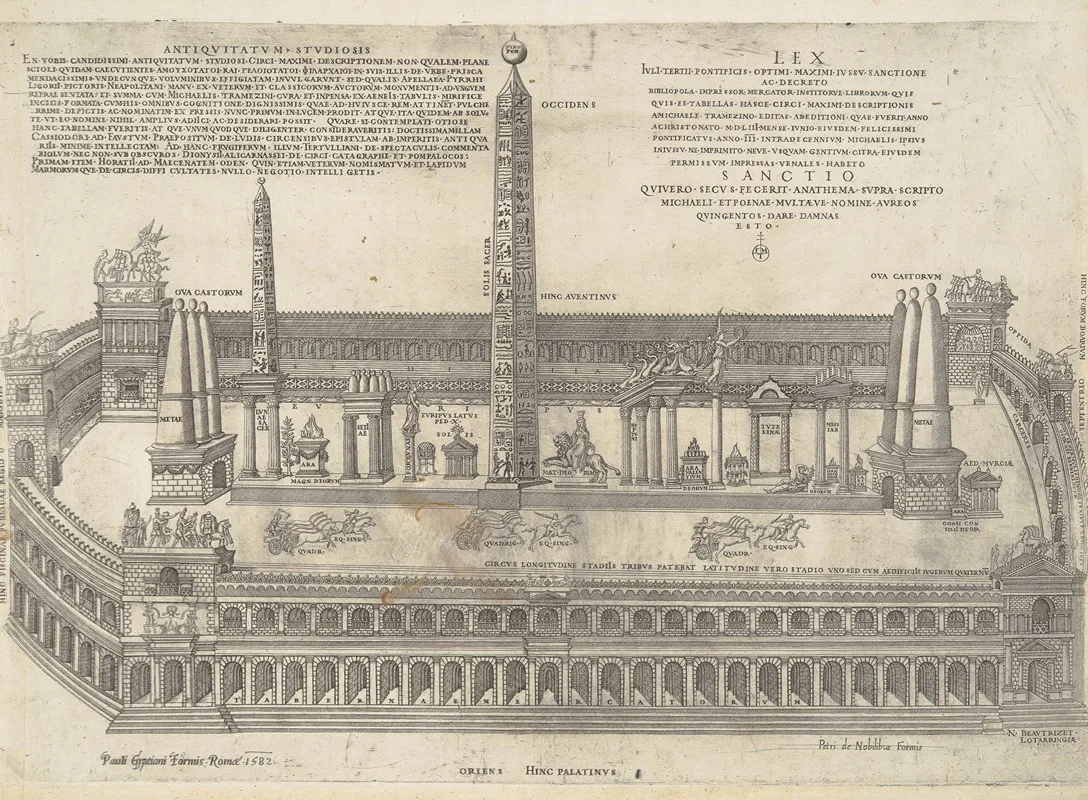 ANTIQVITATVM · STVDIOSIS
EN · VOBIS · CANDIDISSIMI · ANTIQVITATVM · STVDIOSI · CIRCI · MAXIMI · DESCRIPTIONEM · NON · QVALEM · PLANE
SCIOLI · QVIDAM · CAECVTIENTES · ΚΑΙ · IN · SVIS · ILLIS · DE · VRBE · PRISCA
MENDACISSIMIS · VNDECVNQVE · VOLVMINIBVS · EFFIGIATAM · INVVLGARVNT · SED · QVALIS · APELLAEA · PYRRHI
LIGORII · PICTORIS · NEAPOLITANI · MANV · EX · VETERVM · ET · CLASSICORVM · AVCTORVM · MONVMENTIS · AD · VNGVEM
REPRAESENTATA · ET · SVMMA · CVM · MICHAELIS · TRAMEZINI · CVRA · ET · INPENSA · EX · AENEIS · TABVLIS · MIRIFICE
INCISIS · FORMATA · CVM · HIS · OMNIBVS · COGNITIONE · DIGNISSIMIS · QVAE · AD · HVIVSCE · REM · ATTINET · PVLCHE
RRIME · DEPICTIS · AC · NOMINATIM · EXPRESSIS · NVNC · PRIMVM · IN · LVCEM · PRODIT · AT QVE · ITA · QVIDEM · ABSOLV
TE · VT · EO · NOMINE · NIHIL · AMPLIVS · ADIICI · AC · DESIDERARI · POSSIT · QVARE · SI · CONTEMPLATI · OTIOSE
HANC · TABELLAM · FVERITIS · AT QVE · VNVM QVODQVE · DILIGENTER · CONSIDERAVERITIS · DOCTISSIMAM · ILLAM
CASSIODORI · AD · FAVSTVM · PRAEPOSITVM · DE · LVDIS · CIRCENSIBVS · EPISTVLAM · AB · IMPERITIS · ANTIQVA
RIIS · MINIME · INTELLECTAM · AD · HANC · FRVGIFERVM · ILLVM · TERTVLLIANI · DE · SPECTACVLIS · COMMENTA
RIOLVM · NEC · NON · SVBOBSCVROS · DIONYSII · ALICARNASSEI · DE · CIRCI · CATAGRAPHE · ET · POMPA · LOCOS ·
PRIMAM · ITEM · HORATII · AD · MAECENATEM · ODEN · QVIN · ETIAM · VETERVM · NOMISMATVM · ET · LAPIDVM
MARMORVM QVE · DE · CIRCIS · DIFFICVLTATES · NVLLO · NEGOTIO · INTELLIGETIS ·
LEX
IVLI · TERTII · PONTIFICIS · OPTIMI · MAXIMI · IVSSV · SANCTIONE
AC · DECRETO
BIBLIOPOLA · IMPRESSOR · MERCATOR · INSTITORVE · LIBRORVM · QVIS
QVIS · ES · TABELLAS · HASCE · CIRCI · MAXIMI · DESCRIPTIONIS
A MICHAELE · TRAMEZINO · EDITAS · AB EDITIONI · QVAE · FVERIT · ANNO
A CHRISTO NATO · M · D · LIII · MENSE · IVNIO · EIVSDEM · FELICISSIMI
PONTIFICATVS · ANNO · IIII · INTRA · DECENNIVM · MICHAELIS · IPSIVS
INIVSSV · NE · IMPRIMITO · NEVE · VSQVAM · GENTIVM · CITRA · EIVSDEM
PERMISSVM · IMPRESSAS · VENALES · HABETO
SANCTIO
QVI VERO · SECVS · FECERIT · ANATHEMA · SVPRA · SCRIPTO
MICHAELI · ET POENAE · MVLTÆVE · NOMINE · AVREOS
QVINGENTOS · DARE · DAMNAS
ESTO ·
OCCIDENS
SOLIS SACER
HINC AVENTINVS
OVA CASTORVM
OVA CASTORVM
OPPIDA
METAE
LVN
AE SA
CER
E V R I P V S
ARA
MAGN DEORVM
SETI
AE
FORTVNAE
EVRIPVS LATVS
PED · X ·
SOLIS
MAT · DEO
ARA
DEORVM
TVTE
LINAE
MES
SIAE
DEORVM
METAE
AED · MVRCIÆ
ARA
CONSI CON
SILI DEOR
CARCERES
QVADR ·
EQ · SING ·
QVADRIG ·
EQ · SING ·
QVADR ·
EQ · SING ·
CIRCVS LONGITVDINE STADIIS TRIBVS PATEBAT LATITVDINE VERO STADIO VNO SED CVM AEDIFICIIS IVGERVM QVATERNV
TABERNAE MERCATORVM
N · BEAVTRIZET ·
LOTARINGIA
Petri de Nobilibus Formis
Pauli Gratiani Formis · Romæ · 1582
ORIENS HINC PALATINVS